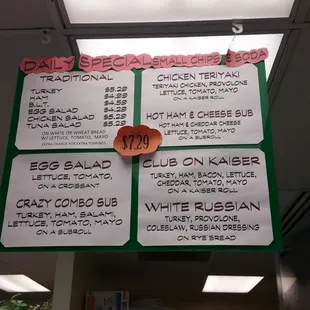 DAILY SPECIAL SMALL CHIPS & SODA
TRADITIONAL
TURKEY $5.29
HAM $4.99
B.L.T. $4.59
EGG SALAD $4.29
CHICKEN SALAD $5.29
TUNA SALAD $5.29
ON WHITE OR WHEAT BREAD
LETTUCE, TOMATO, MAYO
EXTRA CHARGE FOR EXTRA TOPPINGS
CHICKEN TERIYAKI
TERIYAKI CHICKEN, PROVOLONE
LETTUCE, TOMATO, MAYO
ON A KAISER ROLL
HOT HAM & CHEESE SUB
HOT HAM & CHEDDAR CHEESE
LETTUCE, TOMATO, MAYO
ON A SUBROLL
$7.29
EGG SALAD
LETTUCE, TOMATO,
ON A CROISSANT
CRAZY COMBO SUB
TURKEY, HAM, SALAMI,
LETTUCE, TOMATO, MAYO
ON A SUBROLL
CLUB ON KAISER
TURKEY, HAM, BACON, LETTUCE,
CHEDDAR, TOMATO, MAYO
ON A KAISER ROLL
WHITE RUSSIAN
TURKEY, PROVOLONE,
COLESLAW, RUSSIAN DRESSING
ON RYE BREAD